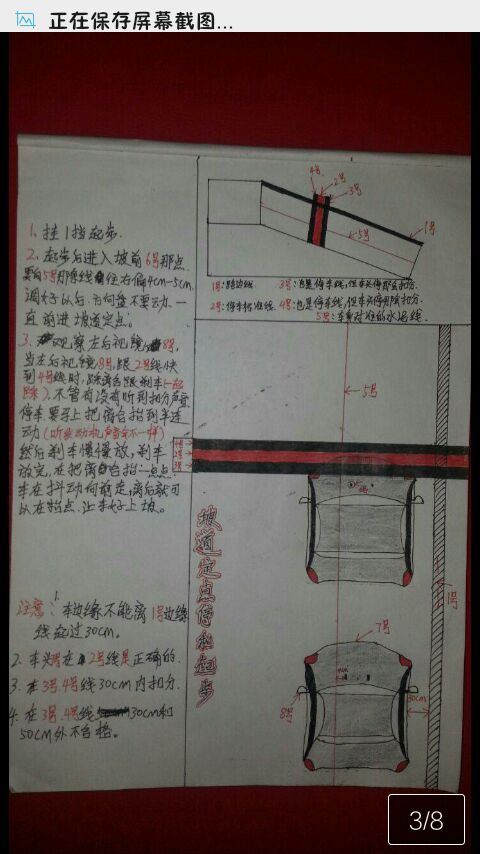 正在保存屏幕截图...
1. 挂1挡起步.
2. 起步后进入坡前6号那点
要向5号那路线往右偏4cm-5cm.
调好以后.方向盘不要动.一
直前进坡道定点.
3. 观察左后视镜 8号,
当左后视镜8号,跟2号线快
到4号线时,踩离合跟刹车(一起
踩).不管有没有听到扣分声音
停车要马上把离合抬到半连
动(听发动机声音不一样)
然后刹车慢慢放,刹车
放完,在把离合抬一点点.
车在抖动向前走,离后就可
以在特点.让车好上坡。
注意:1.车边缘不能离1号边缘
线超过30cm.
2. 车头在2号线是正确的.
3. 在3号.4号线30cm内扣分.
4. 在3号.4号线30cm和
50cm外不合格。
坡道定点停和起步
4号
2号
3号
5号
1号
1号:路边线
3号:也是停车线,但车头停那扣分.
2号:停车标准线.
4号:也是停车线,但车头停那扣分.
5号:车身对准的水沿线.
5号
4号
2号
3号
1号
7号
8号
30cm
3/8